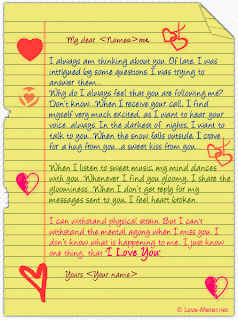 My dear <Names> me,
I always am thinking about you. Of late, I was
intrigued by some questions. I was trying to
answer them...
Why do I always feel that you are following me?
Don't know... When I receive your call, I find
myself very much excited, as I want to hear your
voice..always. In the darkest of nights, I want to
talk to you. When the snow falls outside, I crave
for a hug from you...a sweet kiss from you...
When I listen to sweet music, my mind dances
with you. Whenever I find you gloomy, I share
the gloominess. When I don't get reply for my
messages sent to you, I feel heart broken.
I can withstand physical strain. But I can't
withstand the mental agony when I miss you. I
don't know what is happening to me. I just know
one thing, that "I Love You"
Yours <Your name>
© Love-Meter.net